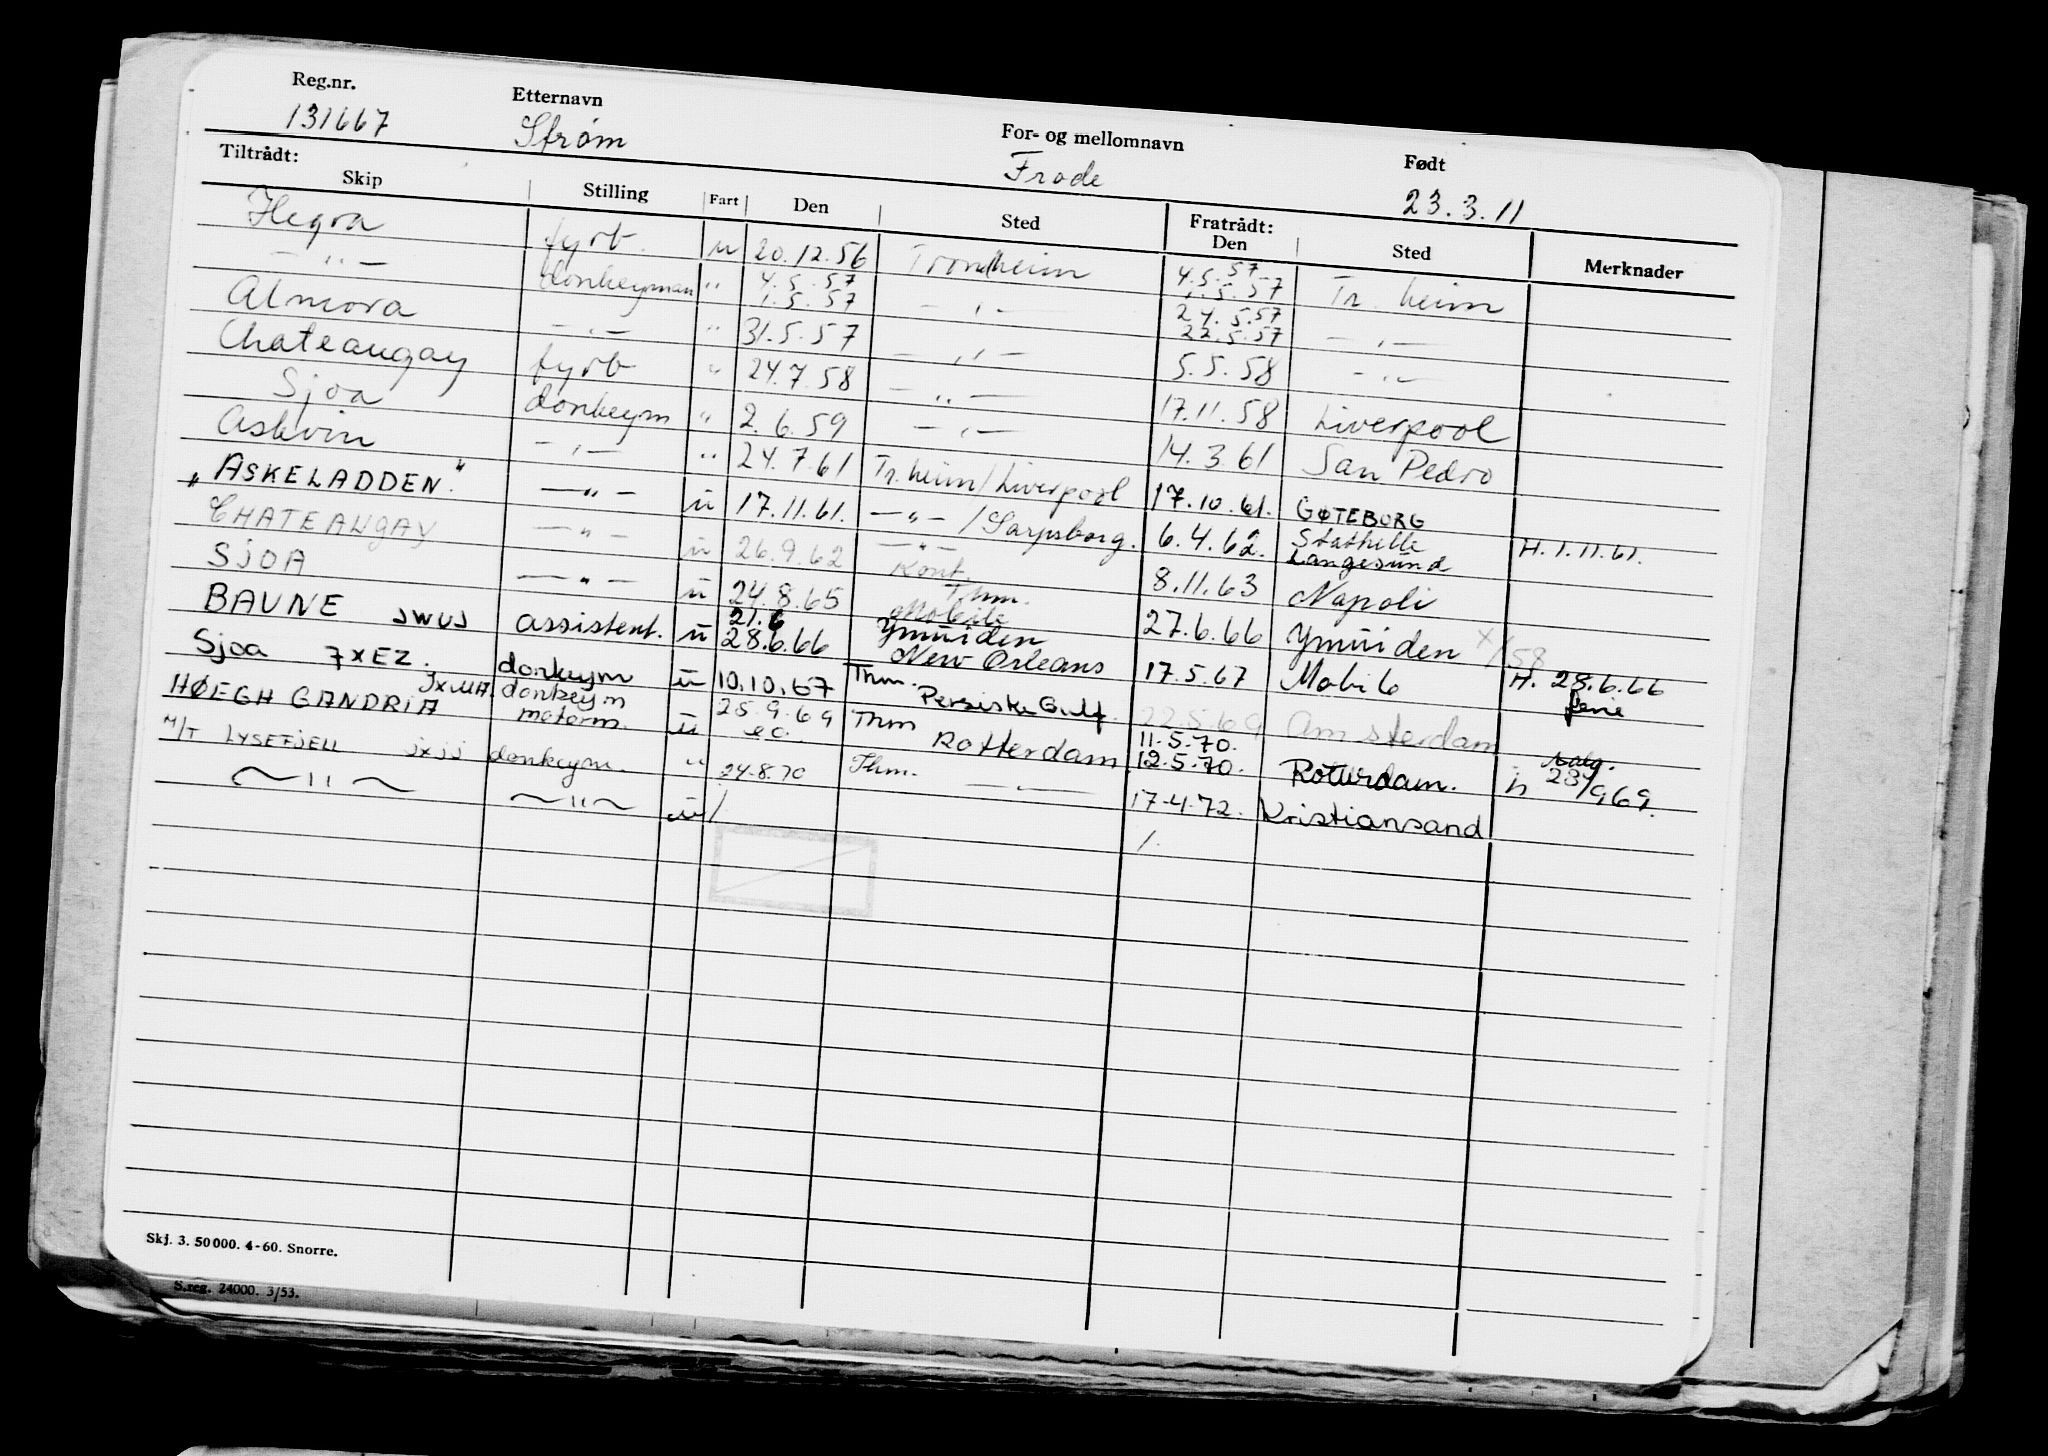 Reg.nr. Etternavn For- og mellomnavn Født
131667 Strøm Frode 23.3.11
Tiltrådt: Fratrådt:
Skip Stilling Fart Den Sted Den Sted Merknader
Hegra fyrb. u 20.12.56 Trondheim 4.5.57 Tr. heim
— " — donkeyman " 4.5.57 1.5.57 — " — 24.5.57 22.5.57 — " —
Almora — " — " 31.5.57 — " — 5.5.58 — " —
Chateaugay fyrb " 24.7.58 — " — 17.11.58 Liverpool
Sjoa donkeym " 2.6.59 — " — 14.3.61 San Pedro
Askvin — " — " 24.7.61 Tr. heim / Liverpool 17.10.61. GØTEBORG
„ASKELADDEN." — " — u 17.11.61. — " — / Sarpsborg. 6.4.62. Stathelle Langesund H. 1.11.61.
CHATEAUGAY — " — u 26.9.62 — " — Kont. 8.11.63 Napoli
SJOA — " — u 24.8.65 Thm. Mobile 27.6.66 Ymuiden
BAUNE JWUJ assistent. u 21.6 28.6.66 Ymuiden New Orleans 17.5.67 Mobile H. 28.6.66
Sjoa 7XEZ. donkeym u 10.10.67 Thm. Persiske Gulf. 22.5.69 Amsterdam ferie
HØEGH GANDRIA JXMA. donkeym motorm. u 25.9.69 Thm Rotterdam 11.5.70. 12.5.70. Rotterdam. 23/9 69.
M/T LYSEFJELL jxjj donkeym. " 24.8.70 Thm. — " — 17.4.72. Kristiansand
— " — — " — u /
Skj. 3. 50 000. 4-60. Snorre.
S.reg. 24000. 3/53.